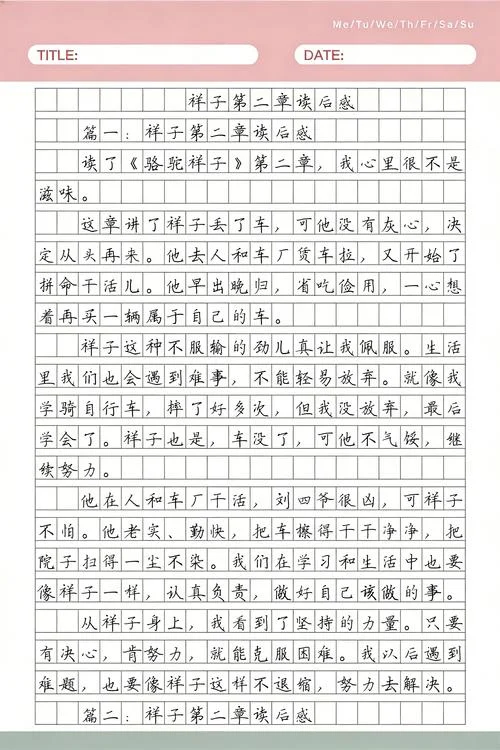 Me/Tu/We/Th/Fr/Sa/Su
TITLE:
DATE:
祥子第二章读后感
篇一：祥子第二章读后感
读了《骆驼祥子》第二章，我心里很不是
滋味。
这章讲了祥子丢了车，可他没有灰心，决
定从头再来。他去人和车厂赁车拉，又开始了
拼命干活儿。他早出晚归，省吃俭用，一心想
着再买一辆属于自己的车。
祥子这种不服输的劲儿真让我佩服。生活
里我们也会遇到难事，不能轻易放弃。就像我
学骑自行车，摔了好多次，但我没放弃，最后
学会了。祥子也是，车没了，可他不气馁，继
续努力。
他在人和车厂干活，刘四爷很凶，可祥子
不怕。他老实、勤快，把车擦得干干净净，把
院子扫得一尘不染。我们在学习和生活中也要
像祥子一样，认真负责，做好自己该做的事。
从祥子身上，我看到了坚持的力量。只要
有决心，肯努力，就能克服困难。我以后遇到
难题，也要像祥子这样不退缩，努力去解决。
篇二：祥子第二章读后感